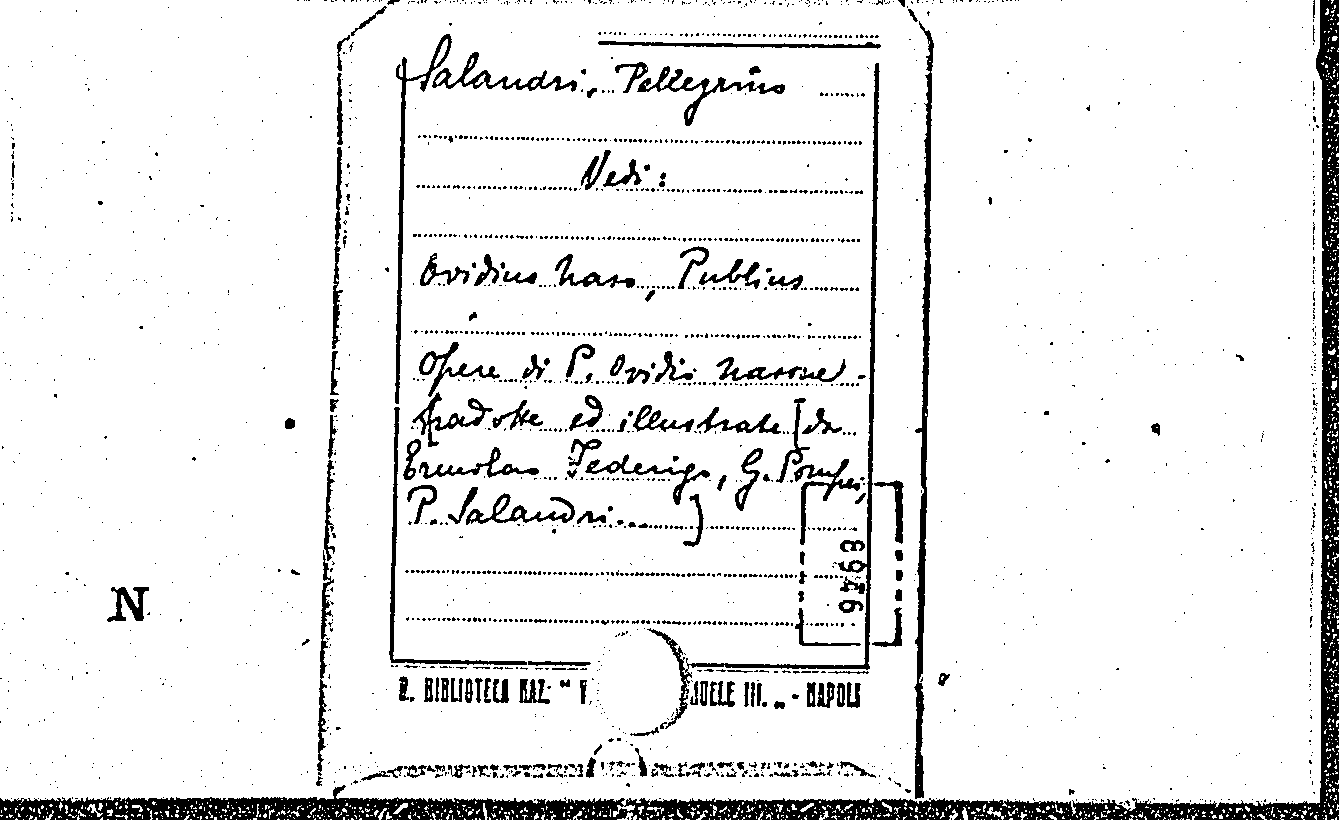 Salandri, Pellegrino
Vedi:
Ovidius Naso, Publius
Opere di P. Ovidio Nasone -
tradotte ed illustrate [da
Ermolao Federigo, G. Pompei,
P. Salandri... ]
6946
N
R. BIBLIOTECA NAZ. " V UELE III. „ - NAPOLI